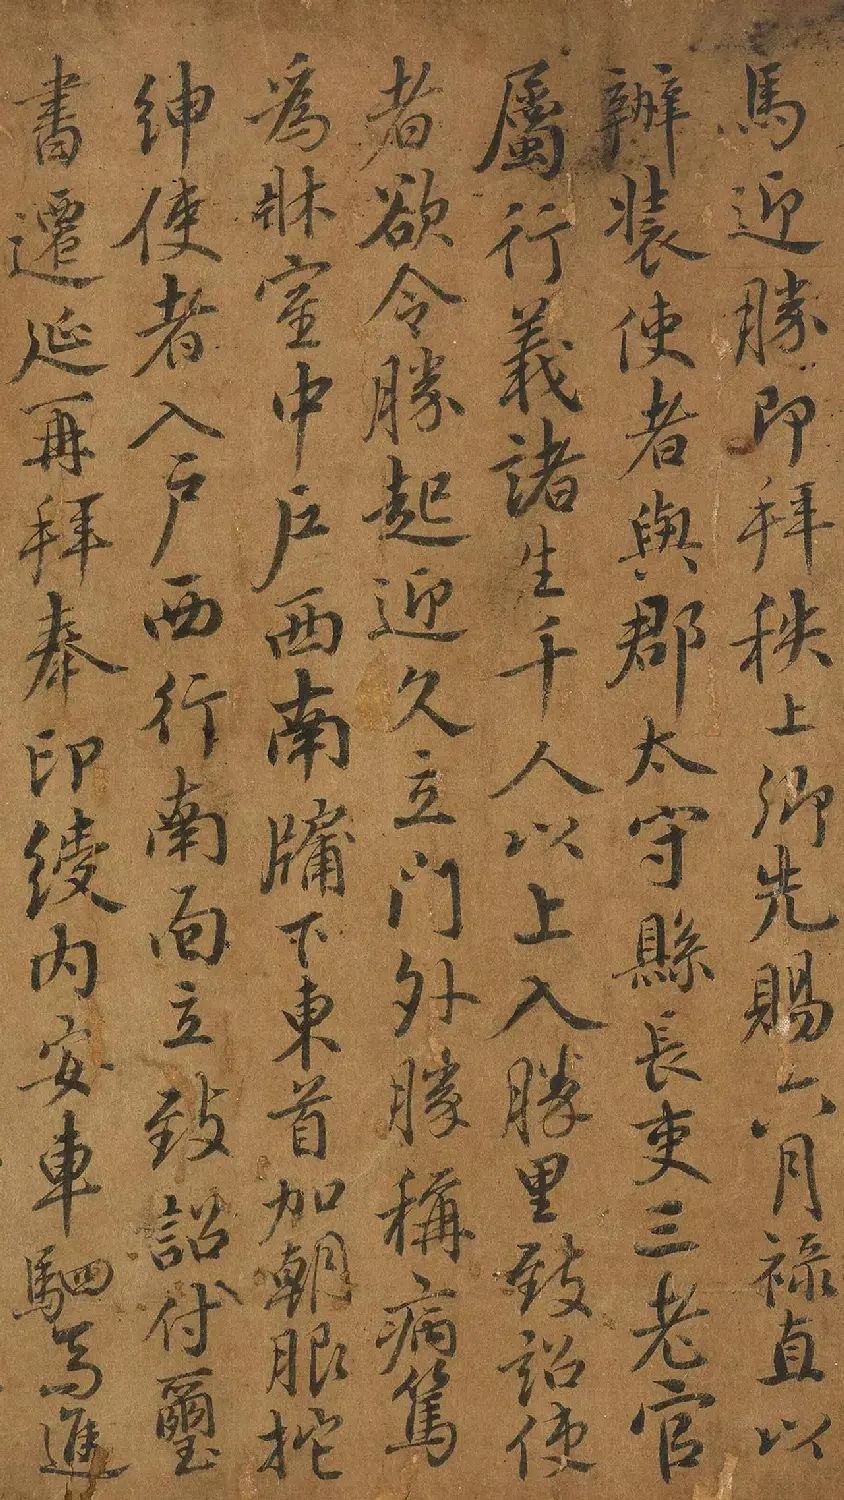 馬迎勝即拜秩上卿先賜六月祿直以
辦裝使者與郡太守縣長吏三老官
屬行義諸生千人以上入勝里致詔使
者欲令勝起迎久立門外勝稱病篤
為牀室中戶西南牖下東首加朝服拕
紳使者入戶西行南面立致詔付璽
書遷延再拜奉印綬內安車駟馬進